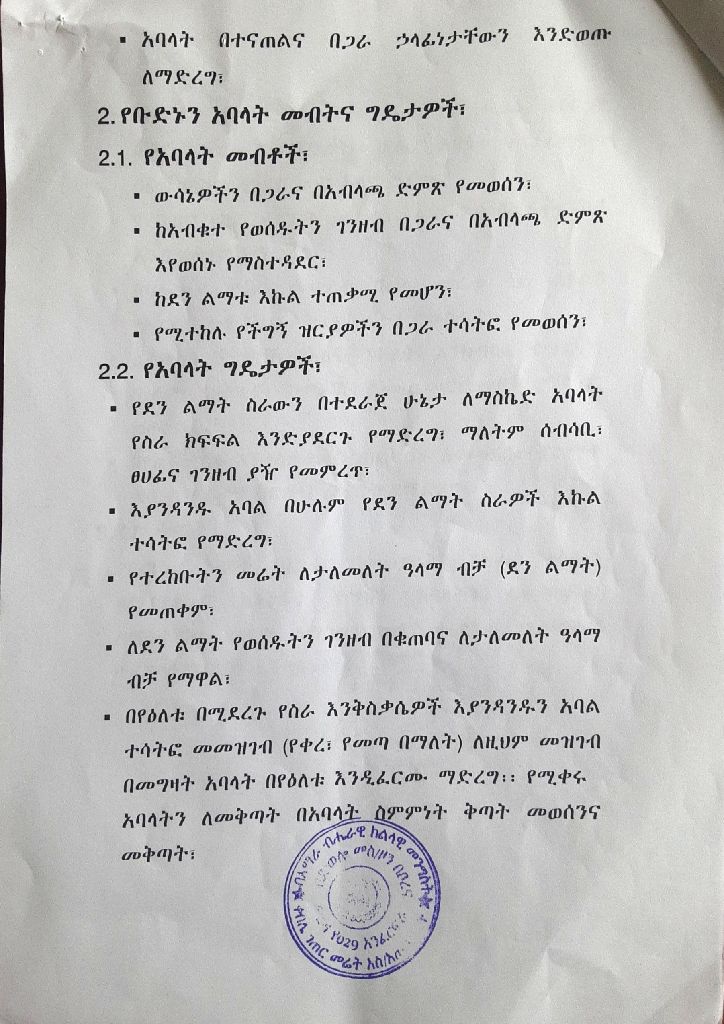 ▪ አባላት በተናጠልና በጋራ ኃላፊነታቸውን እንድወጡ
ለማድረግ፣
2. የቡድኑን አባላት መብትና ግዴታዎች፣
2.1. የአባላት መብቶች፣
▪ ውሳኔዎችን በጋራና በአብላጫ ድምጽ የመወሰን፣
▪ ከአብቁተ የወሰዱትን ገንዘብ በጋራና በአብላጫ ድምጽ
እየወሰኑ የማስተዳደር፣
▪ ከደን ልማቱ እኩል ተጠቃሚ የመሆን፣
▪ የሚተከሉ የችግኝ ዝርያዎችን በጋራ ተሳትፎ የመወሰን፣
2.2. የአባላት ግዴታዎች፣
▪ የደን ልማት ስራውን በተደራጀ ሁኔታ ለማስኬድ አባላት
የስራ ክፍፍል እንድያደርጉ የማድረግ፣ ማለትም ሰብሳቢ፣
ፀሀፊና ገንዘብ ያዥ የመምረጥ፣
▪ እያንዳንዱ አባል በሁሉም የደን ልማት ስራዎች እኩል
ተሳትፎ የማድረግ፣
▪ የተረከቡትን መሬት ለታለመለት ዓላማ ብቻ (ደን ልማት)
የመጠቀም፣
▪ ለደን ልማት የወሰዱትን ገንዘብ በቁጠባና ለታለመለት ዓላማ
ብቻ የማዋል፣
▪ በየዕለቱ በሚደረጉ የስራ እንቅስቃሴዎች እያንዳንዱን አባል
ተሳትፎ መመዝገብ (የቀረ፣ የመጣ በማለት) ለዚህም መዝገብ
በመግዛት አባላት በየዕለቱ እንዲፈርሙ ማድረግ፡፡ የሚቀሩ
አባላትን ለመቅጣት በአባላት ስምምነት ቅጣት መወሰንና
መቅጣት፣
በአማራ ብሔራዊ ክልላዊ መንግስት
ወሎ መስ/ዞን በቦረና
የ029
ገጠር መሬት አስ/አጠ